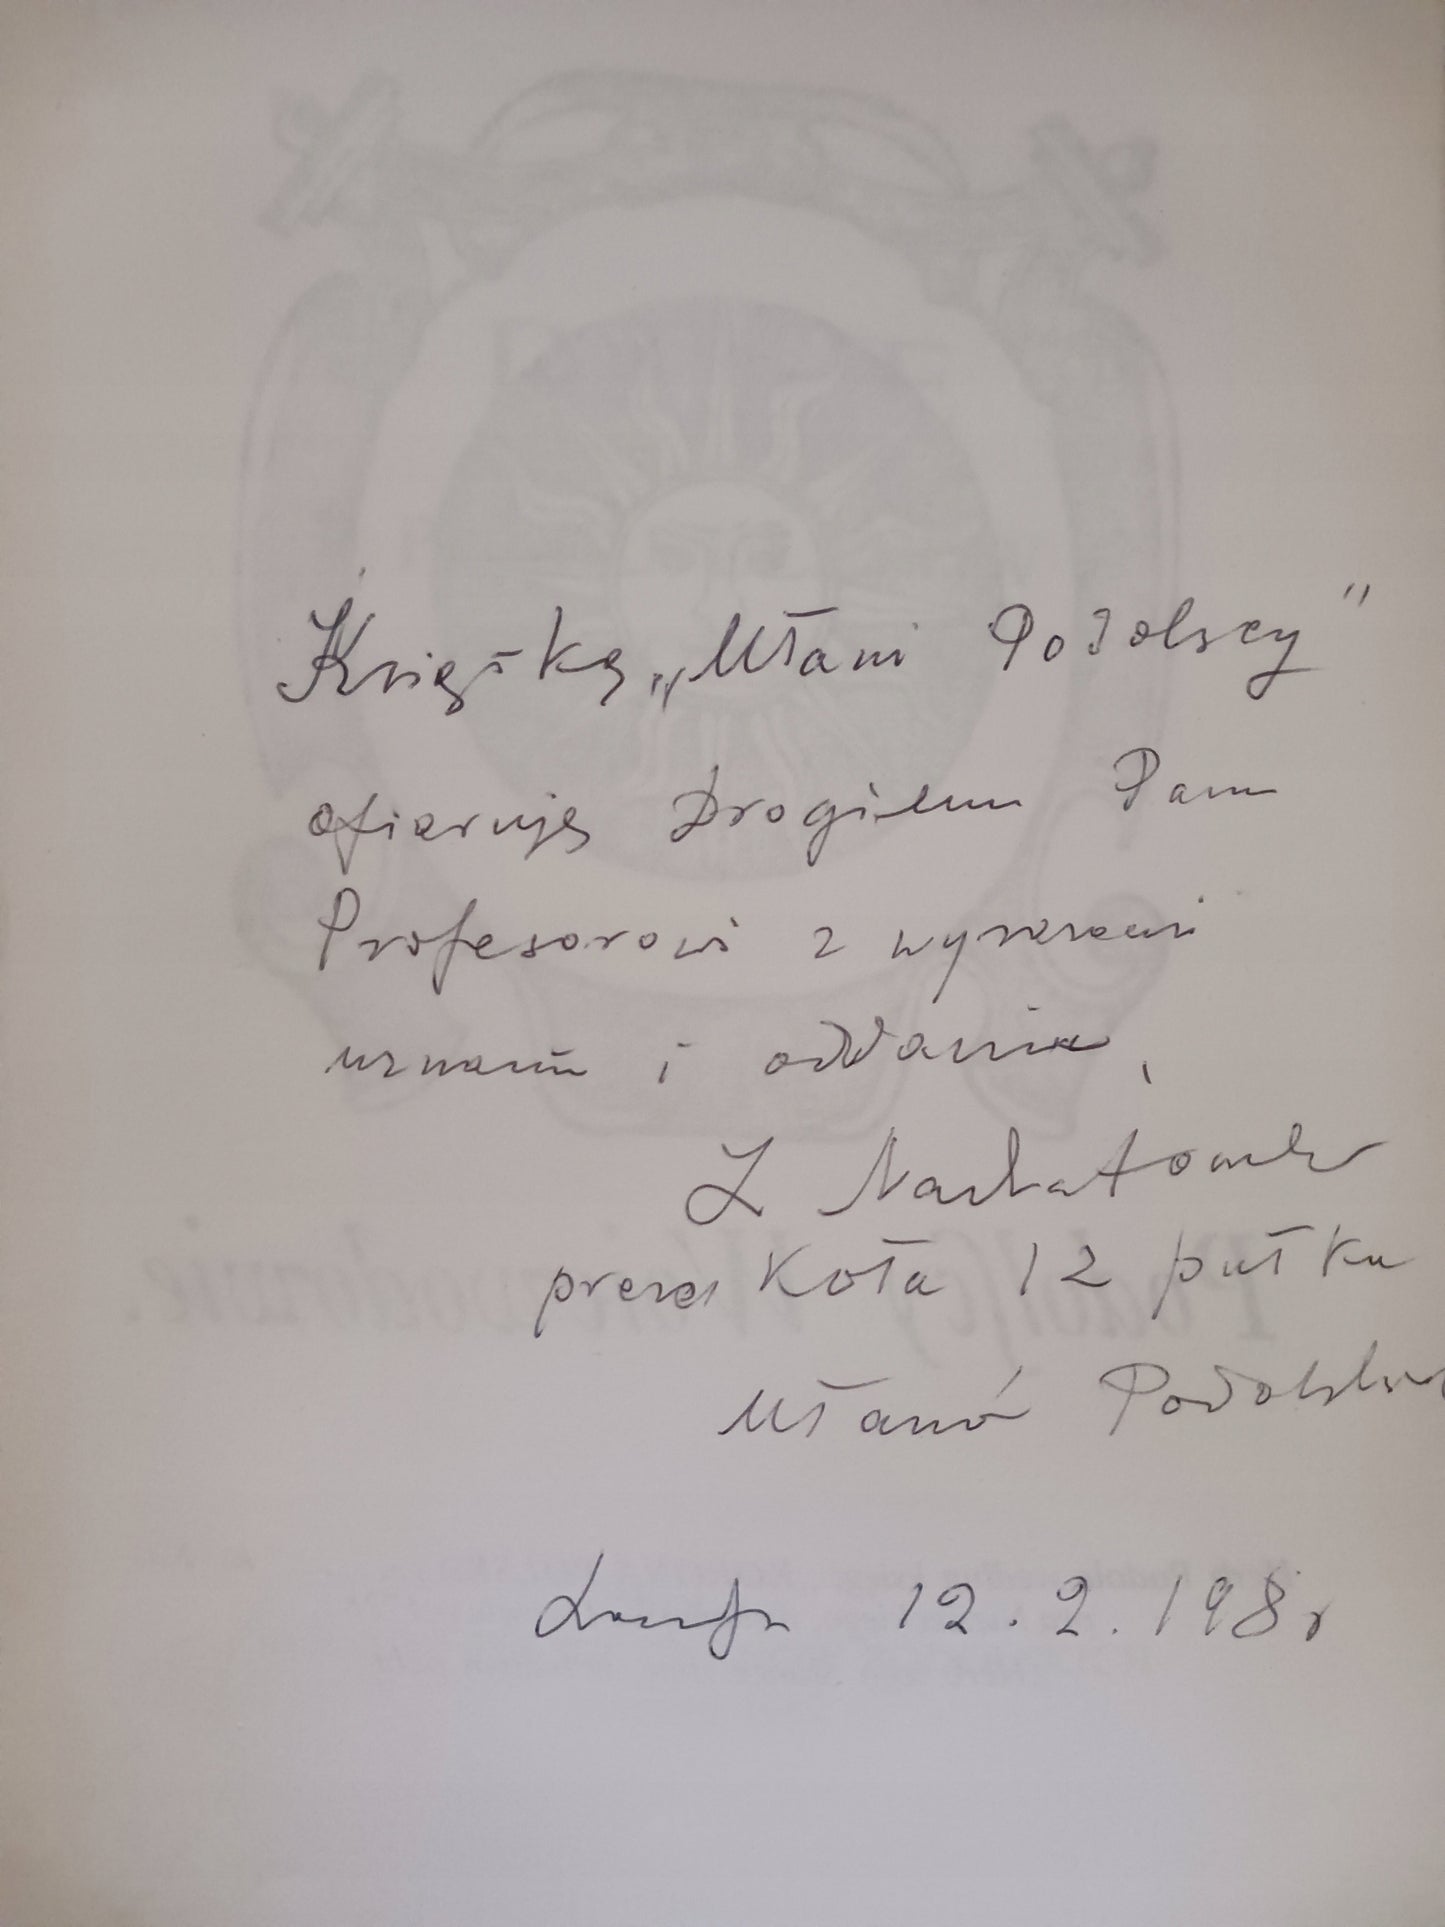 Książkę „Ułani Podolscy"
ofiaruję Drogiemu Panu
Profesorowi z wyrazami
uznania i oddania,
prezes Koła 12 pułku
Ułanów Podolskich
12.2.198 r